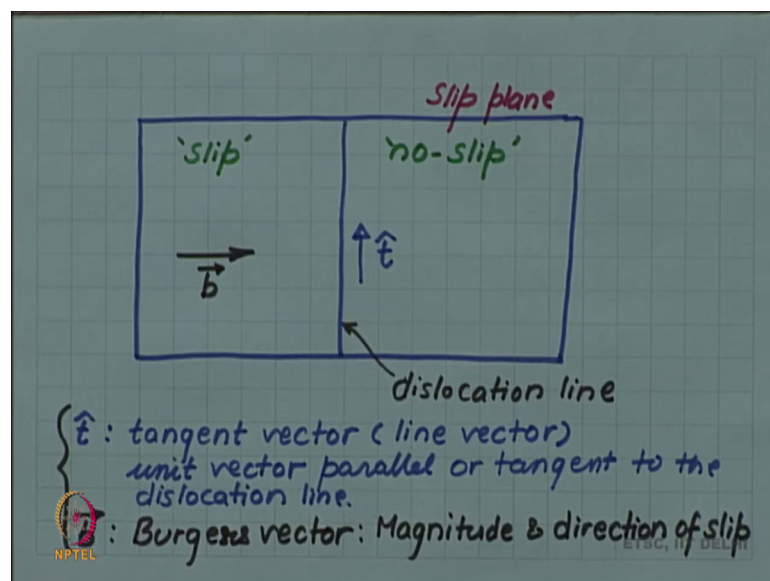 slip plane
'slip'
'no-slip'
t̂
b
dislocation line
t̂ : tangent vector (line vector)
unit vector parallel or tangent to the
dislocation line.
: Burgers vector: Magnitude & direction of slip
NPTEL
ETSC, IIT DELHI